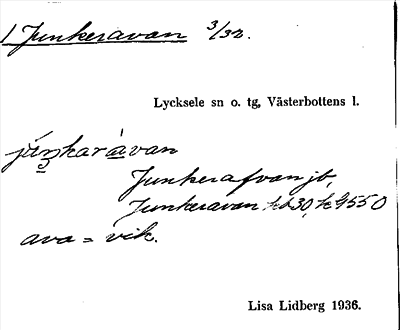 1 Junkeravan 3/32.
Lycksele sn o. tg, Västerbottens l.
júŋkaràvan
Junkerafvan jb,
Junkeravan kb30, k 9550
ava = vik.
Lisa Lidberg 1936.